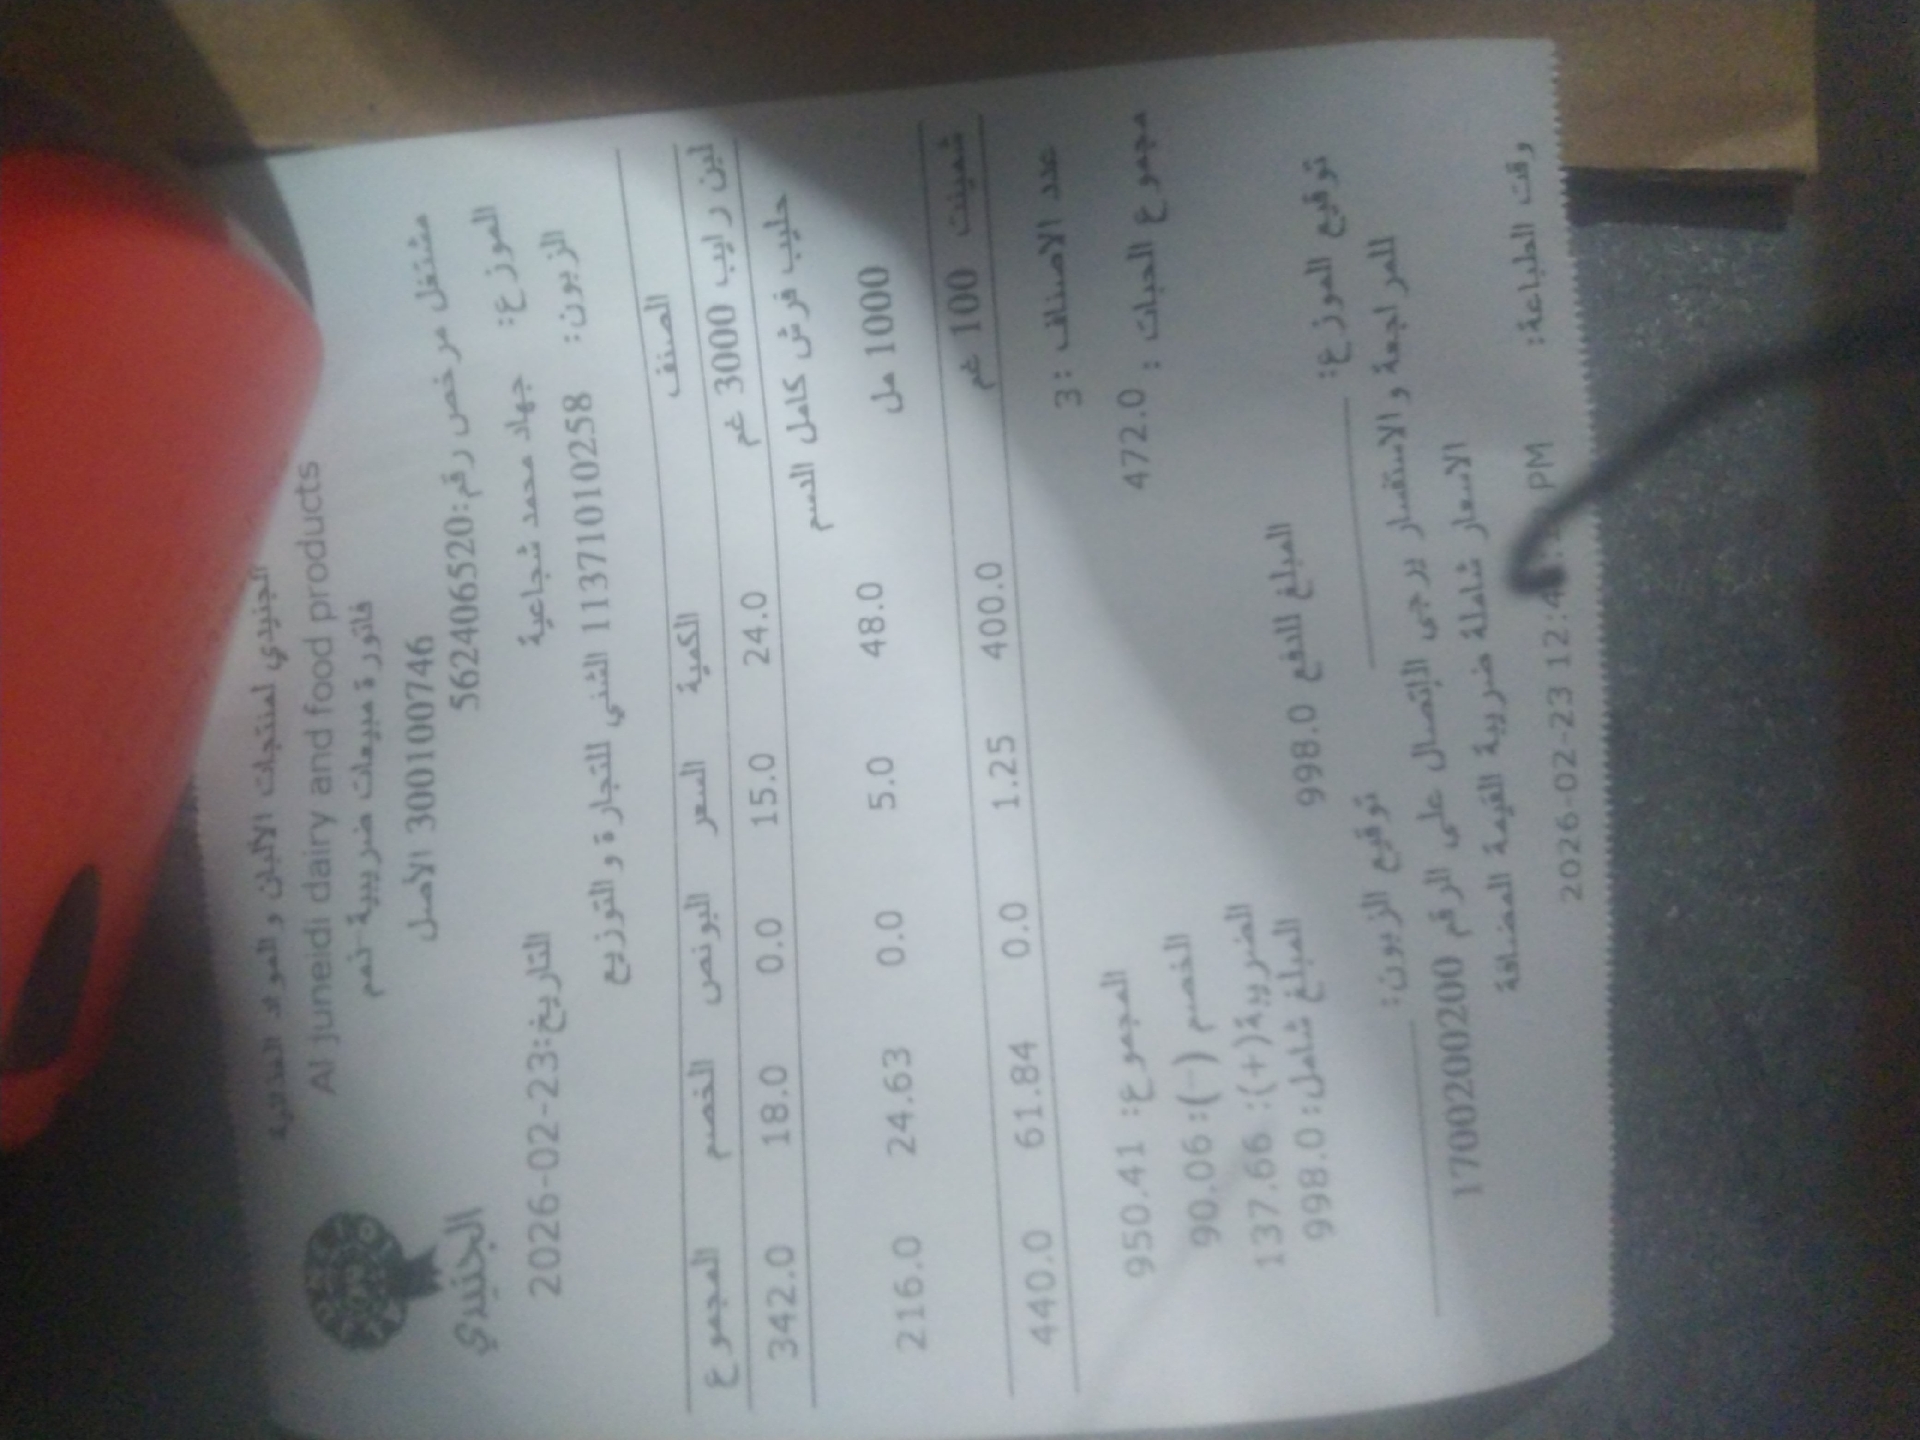 الجنيدي لمنتجات الالبان والمواد الغذائية
Al juneidi dairy and food products
فاتورة مبيعات ضريبية-نعم
3001000746 الاصل
الجنيدي
مشتغل مرخص رقم:562406520
الموزع: جهاد محمد شجاعية
التاريخ:2026-02-23
الزبون: 1137101010258 الشني للتجارة والتوزيع
الصنف الكمية السعر البونص الخصم المجموع
لبن رايب 3000 غم 24.0 15.0 0.0 18.0 342.0
حليب فرش كامل الدسم
1000 مل 48.0 5.0 0.0 24.63 216.0
شمينت 100 غم 400.0 1.25 0.0 61.84 440.0
عدد الاصناف : 3
مجموع الحبات : 472.0
المجموع: 950.41
الخصم (-): 90.06
الضريبة(+): 137.66
المبلغ شامل: 998.0
المبلغ للدفع 998.0
توقيع الموزع:
توقيع الزبون:
للمراجعة والاستفسار يرجى الإتصال على الرقم 1700200200
الاسعار شاملة ضريبة القيمة المضافة
وقت الطباعة: 2026-02-23 PM